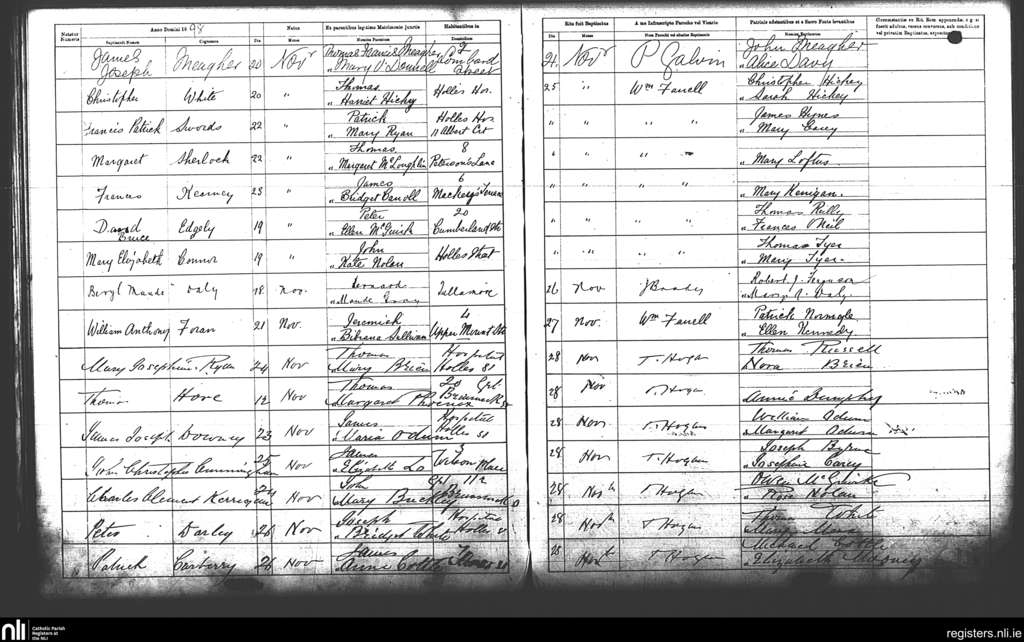 Numerus
Anno Domini 1898
Natus
Ex parentibus legitimo Matrimonio junctis
Habitantibus in
Septimanâ Nomen
Cognomen
Die
Mense
Nomina Parentium
Domicilium
James Joseph Meagher 20 Novr Thomas Daniel Meagher 2 Lombard Street
" Mary O'Donnell
Christopher White 20 " Thomas Holles Hos.
" Harriet Hickey
Francis Patrick Swords 22 " Patrick Holles Hos
" Mary Ryan 11 Albert Crt
Margaret Sherlock 22 " Thomas 8
" Margaret McLoughlin Petersons Lane
Frances Kearney 23 " James 6
" Bridget Carroll Mackey's Terrace
David Bruce Edgely 19 " Peter 20
" Ellen McGuirk Cumberland St
Mary Elizabeth Connor 19 " John Holles Street
" Kate Nolan
Beryl Maude Daly 18 Nov. Bernard Tullamore
" Maude
William Anthony Foran 21 Nov. Jeremiah 4
" Bibiana Sullivan Upper Mount St
Mary Josephine Ryan 24 Nov Thomas Hospital
Mary Brien Holles St
Thomas Hore 12 Nov Thomas 20 Gt
Margaret Brunswick St
James Joseph Downey 23 Nov James Hospital
" Maria Odum Holles St
John Christopher Cunningham 25 Nov James 3
" Elizabeth Wilson Place
Charles Clement Kerrigan 24 Nov John Gt 112
Mary Buckley Brunswick S
Peter Darley 26 Nov Joseph Hospital
" Bridget White Holles S
Patrick Carberry 26 Nov James
Anne Thomas St
Ritu fuit Baptizatus
A me Infrascripto Parocho vel Vicario
Patrinis adstantibus et a Sacro Fonte levantibus
Die
Mense
24 Novr P Galvin John Meagher
" Alice Davy
25 " Wm Farrell Christopher Hickey
" Sarah Hickey
" " " " James Hynes
" Mary Carey
" " " " Mary Loftus
" " " " Mary Kerrigan.
" " " " Thomas Reilly
" Frances O'Neil
" " " " Thomas Tyer
" Mary Tyer.
26 Nov J Brady Robert J. Ferguson
" Mary J. Daly.
27 Nov. Wm Farrell Patrick Normoyle
" Ellen Kennedy
28 Nov T. Hogan Thomas Russell
Nora Brien
28 Nov T. Hogan Annie Dumphy
28 Nov T. Hogan William Odum
" Margaret Odum
28 Nov T. Hogan Joseph Byrne
" Josephine Carey
28 Nov T Hogan Owen
" Rose Nolan
28 Nov T Hogan Thomas White
Mary
28 Nov T Hogan Michael
" Elizabeth
nli
Catholic Parish
Registers at
the NLI
registers.nli.ie